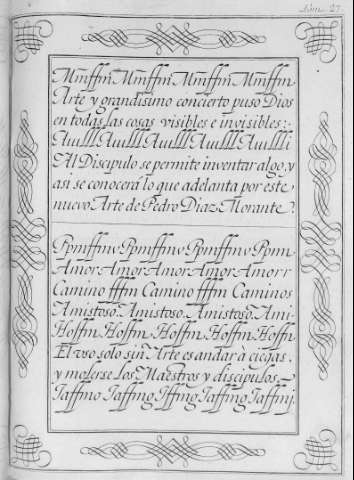 Lám. 27.
Mmffm Mmffm Mmffm Mmffm
Arte y grandisimo concierto puso Dios
en todas las cosas visibles e invisibles:
Auulll Auulll Auulll Auulll Auulll
Al Discipulo se permite inventar algo, y
asi se conocerá lo que adelanta por este
nuevo Arte de Pedro Diaz Morante.
Ppmffmv Ppmffmv Ppmffmv Ppmm
Amor Amor Amor Amor Amor r
Camino fffm Camino fffm Caminos
Amistoso. Amistoso. Amistoso. Ami
Hoffm Hoffm Hoffm Hoffm Hoffm
El vso solo sin Arte es andar à ciegas,
y molerse Los Maestros y discipulos
Jaffmo Jaffmg Jffmg Jaffmg Jaffmj